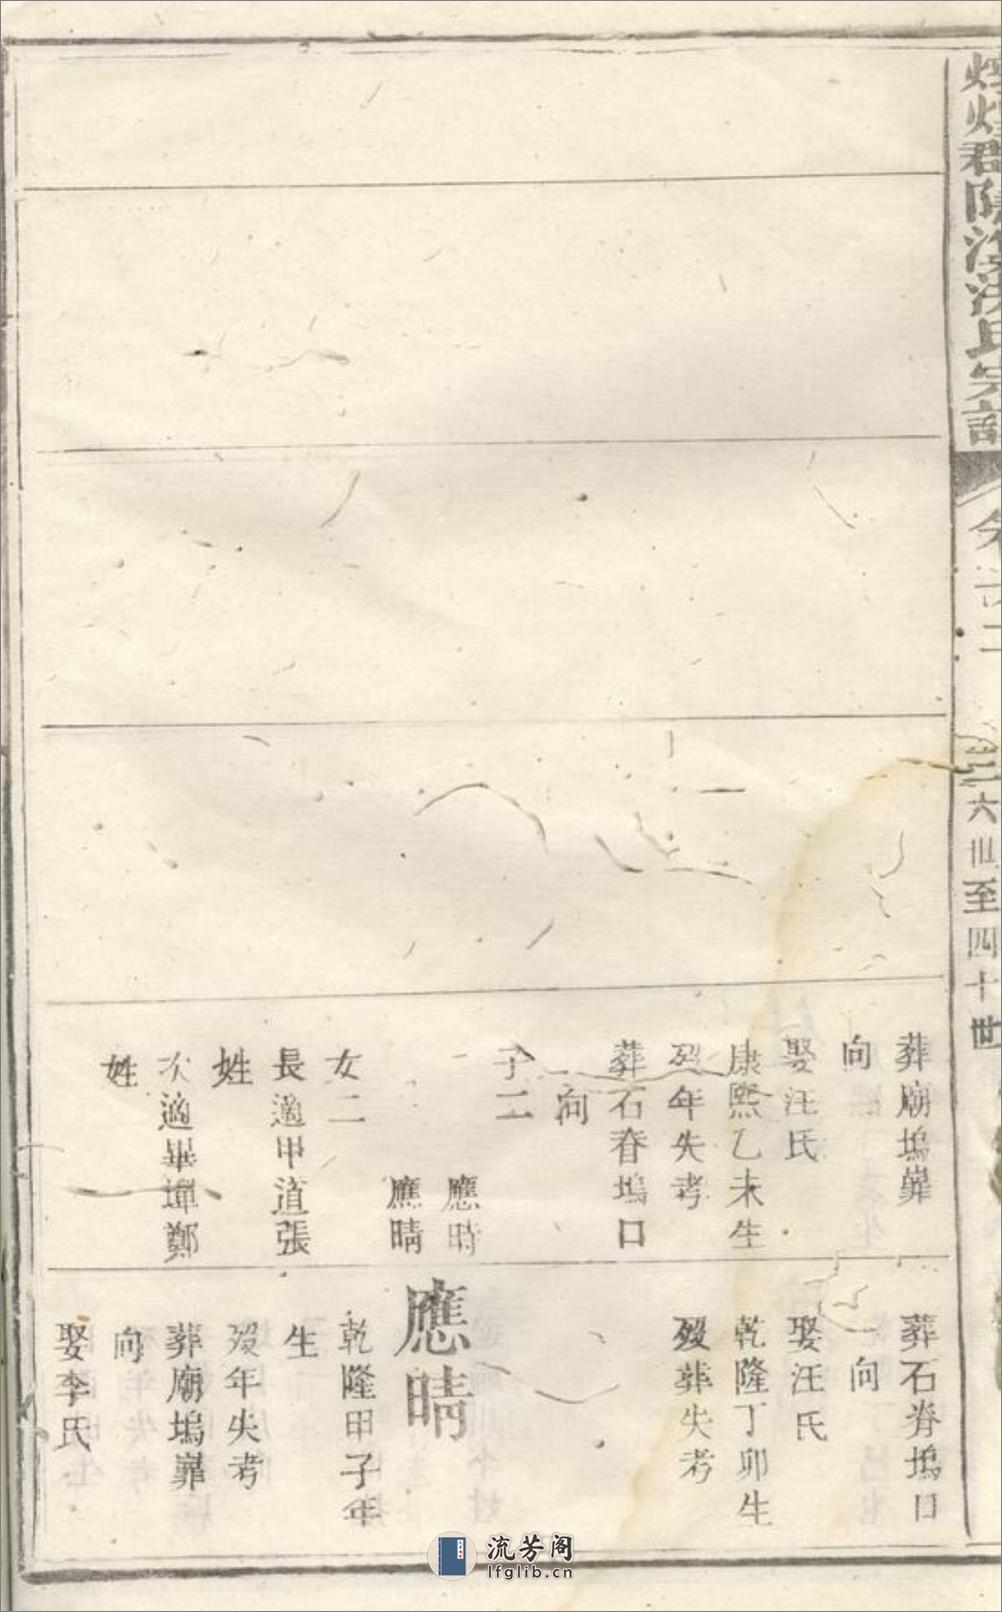 君
氏宗譜
六世至四十世
葬廟塢嶭
向
娶汪氏
康熙乙未生
歿年失考
葬石脊塢口
向
子二
應時
應晴
女二
長適甲道張
姓
次適畢墠鄭
姓
葬石脊塢口
一向
娶汪氏
乾隆丁卯生
歿葬失考
應晴
乾隆甲子年
生
歿年失考
葬廟塢嶭
向
娶李氏
流芳阁
lfglib.cn